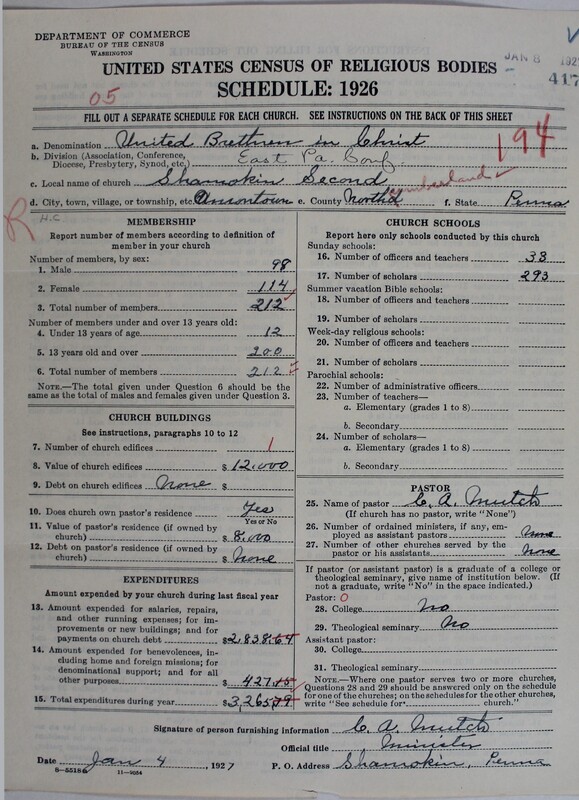 DEPARTMENT OF COMMERCE
BUREAU OF THE CENSUS
WASHINGTON
JAN 8 192
417
UNITED STATES CENSUS OF RELIGIOUS BODIES
SCHEDULE: 1926
05
FILL OUT A SEPARATE SCHEDULE FOR EACH CHURCH. SEE INSTRUCTIONS ON THE BACK OF THIS SHEET
194
a. Denomination United Brethren in Christ
b. Division (Association, Conference, Diocese, Presbytery, Synod, etc.) East Pa. Conf.
c. Local name of church Shamokin Second
d. City, town, village, or township, etc. e. County North'd umberland f. State Penna
R H.C.
MEMBERSHIP
Report number of members according to definition of member in your church
Number of members, by sex:
1. Male 98
2. Female 114
3. Total number of members 212
Number of members under and over 13 years old:
4. Under 13 years of age 12
5. 13 years old and over 200
6. Total number of members 212
NOTE.—The total given under Question 6 should be the same as the total of males and females given under Question 3.
CHURCH BUILDINGS
See instructions, paragraphs 10 to 12
7. Number of church edifices 1
8. Value of church edifices $ 12,000
9. Debt on church edifices None $
10. Does church own pastor's residence Yes
Yes or No
11. Value of pastor's residence (if owned by church) $ 8,000
12. Debt on pastor's residence (if owned by church) $ None
EXPENDITURES
Amount expended by your church during last fiscal year
13. Amount expended for salaries, repairs, and other running expenses; for improvements or new buildings; and for payments on church debt $ 2,838.64
14. Amount expended for benevolences, including home and foreign missions; for denominational support; and for all other purposes $ 427.15
15. Total expenditures during year $ 3,265.79
CHURCH SCHOOLS
Report here only schools conducted by this church
Sunday schools:
16. Number of officers and teachers 33
17. Number of scholars 293
Summer vacation Bible schools:
18. Number of officers and teachers
19. Number of scholars
Week-day religious schools:
20. Number of officers and teachers
21. Number of scholars
Parochial schools:
22. Number of administrative officers
23. Number of teachers—
a. Elementary (grades 1 to 8)
b. Secondary
24. Number of scholars—
a. Elementary (grades 1 to 8)
b. Secondary
PASTOR
25. Name of pastor C. A. Mutch
(If church has no pastor, write "None")
26. Number of ordained ministers, if any, employed as assistant pastors None
27. Number of other churches served by the pastor or his assistants None
If pastor (or assistant pastor) is a graduate of a college or theological seminary, give name of institution below. (If not a graduate, write "No" in the space indicated.)
Pastor: 0
28. College No
29. Theological seminary No
Assistant pastor:
30. College
31. Theological seminary
NOTE.—Where one pastor serves two or more churches, Questions 28 and 29 should be answered only on the schedule for one of the churches; on the schedules for the other churches, write "See schedule for church."
Signature of person furnishing information C. A. Mutch
Official title Minister
Date Jan 4, 1927 P. O. Address Shamokin, Penna
11-9054